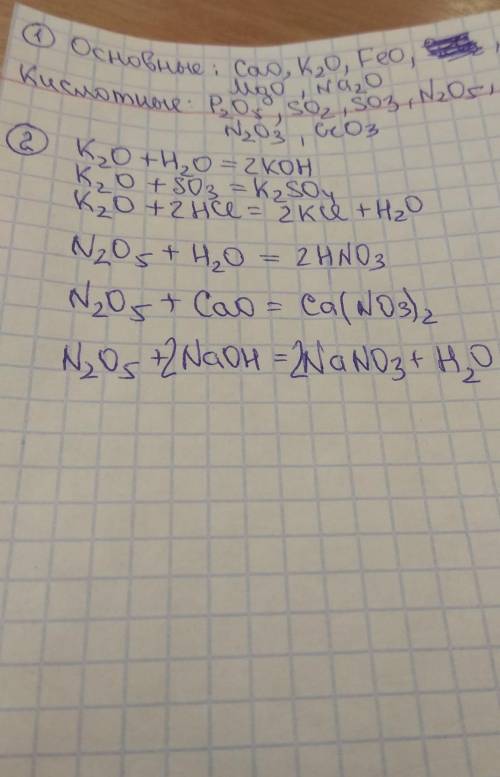 ① Основные: CaO, K₂O, FeO, ,
MgO, Na₂O
Кислотные: P₂O₅, SO₂, SO₃, N₂O₅,
N₂O₃, CrO₃
② K₂O + H₂O = 2KOH
K₂O + SO₃ = K₂SO₄
K₂O + 2HCl = 2KCl + H₂O
N₂O₅ + H₂O = 2HNO₃
N₂O₅ + CaO = Ca(NO₃)₂
N₂O₅ + 2NaOH = 2NaNO₃ + H₂O